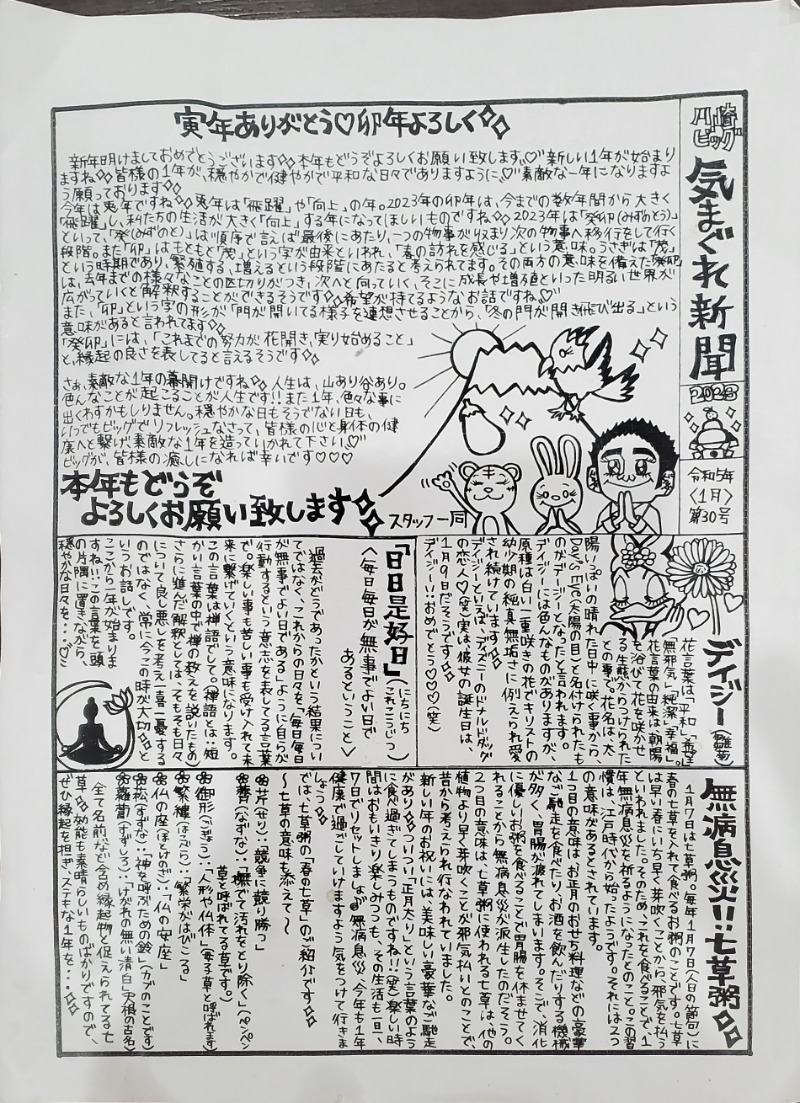 川崎ビッグ
気まぐれ新聞
2023
令和5年
〈1月〉
第30号
寅年ありがとう♡卯年よろしく
新年明けましておめでとうございます本年もどうぞよろしくお願い致します。新しい1年が始まり
ますね皆様の1年が、穏やかで健やかで平和な日々でありますように♡素敵な一年になりますよ
う願っております
今年は兎年ですね兎年は「飛躍」や「向上」の年。2023年の卯年は、今までの数年間から大きく
「飛躍」し、私たちの生活が大きく「向上」する年になってほしいものですね2023年は「癸卯(みずのとう)」
といって、「癸(みずのと)」は順序で言えば最後にあたり、一つの物事が収まり次の物事へ移行をして行く
段階。また「卯」はもともと「茂」という字が由来といわれ、「春の訪れを感じる」という意味。うさぎは「茂」
という時期であり、繁殖する、増えるという段階にあたると考えられてます。その両方の意味を備えた癸卯
は、去年までの様々なことの区切りがつき、次へと向っていく、そこに成長や増殖といった明るい世界が
広がっていくと解釈することができるそうです希望が持てるようなお話ですね♡
また、「卯」という字の形が「門が開いてる様子を連想させることから、「冬の門が開き飛び出る」という
意味があると言われてます
「癸卯」には、「これまでの努力が花開き、実り始めること」
と、縁起の良さを表してると言えるそうです
さぁ、素敵な1年の幕開けですね人生は、山あり谷あり。
色んなことが起こることが人生です!!また1年、色々な事に
出くわすかもしりません。穏やかな日もそうでない日も、
いつでもビッグでリフレッシュなさって、皆様の心と身体の健
康へと繋げ、素敵な1年を造っていかれて下さい♡
ビッグが、皆様の癒しになれば幸いです♡♡♡
本年もどうぞ
よろしくお願い致します
スタッフ一同
デイジー(雛菊)
花言葉は「平和」「希望」
「無邪気」「純潔」「幸福」。
花言葉の由来は、朝陽
を浴びて花を咲かせ
る生態からつけられた
との事で。花名は、太
陽いっぱいの晴れた日中に咲く事から、
Day's Eye(太陽の目)と名付けられたも
のがデージーとなったと言われます。
デイジーには色んなものがありますが、
原種は白い一重咲きの花でキリストの
幼少期の純真無垢さに例えられ愛
され続けています
デイジーといえば、ディズニーのドナルドダック
の恋人♡(笑)実は、彼女の誕生日は、
1月9日だそうです
デイジー!!おめでとう♡♡♡(笑)
「日日是好日」(にちにちこれこうじつ)
〈毎日毎日が無事でよい日で
あるということ〉
過去がどうであったかという結果につい
てではなく、これからの日々を、「毎日毎日
が無事でよい日である」ように自らが
行動するという意志を表してる言葉
で。楽しい事も苦しい事も受け入れて未
来に繋げていくという意味になります。
この言葉は禅語でして。禅語とは…短
かい言葉の中で禅の教えを説いたもの
さらに進んだ解釈としては、そもそも日々
について良し悪しを考え一喜一憂する
のではなく、常に今この時が大切と
いうお話しです。
ここから一年が始まりま
すね!!この言葉を頭
の片隅に置きながら、
穏やかな日々を…♡
無病息災!!七草粥
1月7日は七草粥。毎年1月7日(人日の節句)に
春の七草を入れて食べるお粥のことです。七草
は早い春にいち早く芽吹くことから邪気を払う
といわれました。そのためこれを食べることで、1
年無病息災を祈るようになったとのこと。この習
慣は、江戸時代から始ったようです。それには2つ
の意味があるとされています。
1つ目の意味は、お正月のおせち料理などの豪華
なご馳走を食べたり、お酒を飲んだりする機械
が多く、胃腸が疲れてしまいます。そこで、消化
に優しいお粥を食べることで胃腸を休ませてく
れることから無病息災が派生したのだそう。
2つ目の意味は、七草粥に使われる七草は、他の
植物より早く芽吹くことが邪気払いとのことで、
昔から考えられ行なわれていました。
新しい年のお祝いには、美味しい豪華なご馳走
があり♡ついつい「正月太り」という言葉のよう
に食べ過ぎてしまうものですね!!(笑)楽しい時
間はおもいきり楽しみつつも、その生活も一旦、
7日でリセットしましょ♡無病息災、今年も1年
健康で過ごしていけますよう気をつけて行きま
しょっ。
では、七草粥の「春の七草」のご紹介です
〜七草の意味も添えて〜
芹(せり):「競争に競り勝つ」
薺(なずな):「撫でて汚れをとり除く」(ペンペン
草と呼ばれてる草です。)
御形(ごぎょう):「人形や仏体」(母子草と呼ばれます)
繁縷(はこべら):「繁栄がはびこる」
仏の座(ほとけのざ):「仏の安座」
菘(すずな):「神を呼ぶための鈴」(カブのことです)
蘿蔔(すずしろ):「けがれの無い清白」(大根の古名)
全て名前なども含め縁起物と促えられてる七
草効能も素晴らしいものばかりですので、
ぜひ縁起を担ぎ、ステキな1年を…